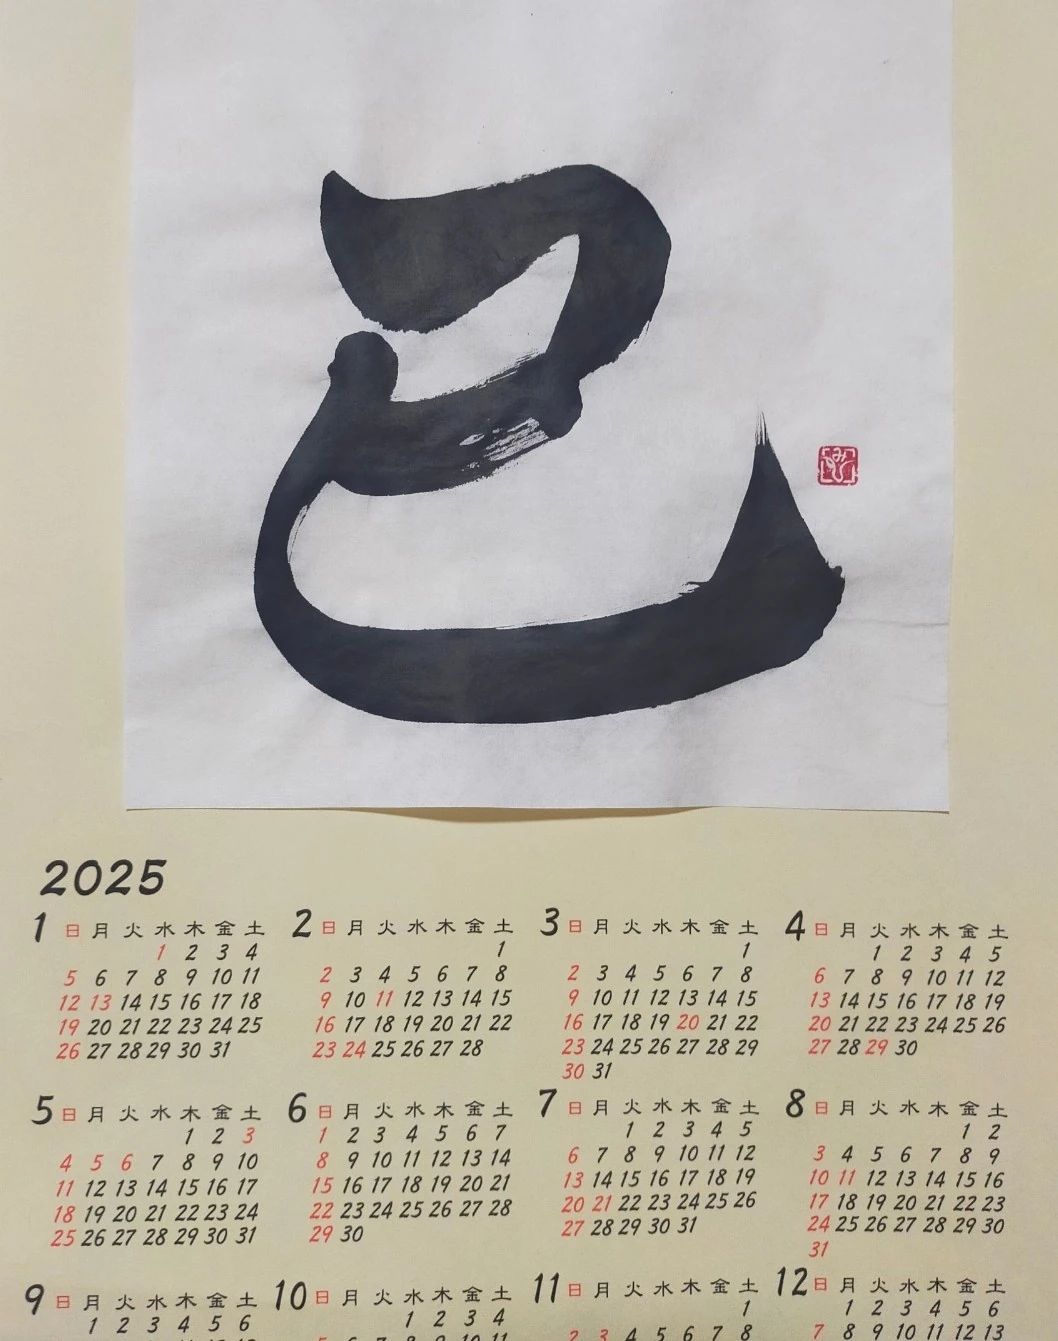 巳
2025
1 日 月 火 水 木 金 土
1 2 3 4
5 6 7 8 9 10 11
12 13 14 15 16 17 18
19 20 21 22 23 24 25
26 27 28 29 30 31
2 日 月 火 水 木 金 土
1
2 3 4 5 6 7 8
9 10 11 12 13 14 15
16 17 18 19 20 21 22
23 24 25 26 27 28
3 日 月 火 水 木 金 土
1
2 3 4 5 6 7 8
9 10 11 12 13 14 15
16 17 18 19 20 21 22
23 24 25 26 27 28 29
30 31
4 日 月 火 水 木 金 土
1 2 3 4 5
6 7 8 9 10 11 12
13 14 15 16 17 18 19
20 21 22 23 24 25 26
27 28 29 30
5 日 月 火 水 木 金 土
1 2 3
4 5 6 7 8 9 10
11 12 13 14 15 16 17
18 19 20 21 22 23 24
25 26 27 28 29 30 31
6 日 月 火 水 木 金 土
1 2 3 4 5 6 7
8 9 10 11 12 13 14
15 16 17 18 19 20 21
22 23 24 25 26 27 28
29 30
7 日 月 火 水 木 金 土
1 2 3 4 5
6 7 8 9 10 11 12
13 14 15 16 17 18 19
20 21 22 23 24 25 26
27 28 29 30 31
8 日 月 火 水 木 金 土
1 2
3 4 5 6 7 8 9
10 11 12 13 14 15 16
17 18 19 20 21 22 23
24 25 26 27 28 29 30
31
9 日 月 火 水 木 金 土
1 2 3 4 5 6
10 日 月 火 水 木 金 土
1 2 3 4
11 日 月 火 水 木 金 土
1
2 3 4 5 6 7 8
12 日 月 火 水 木 金 土
1 2 3 4 5 6
7 8 9 10 11 12 13